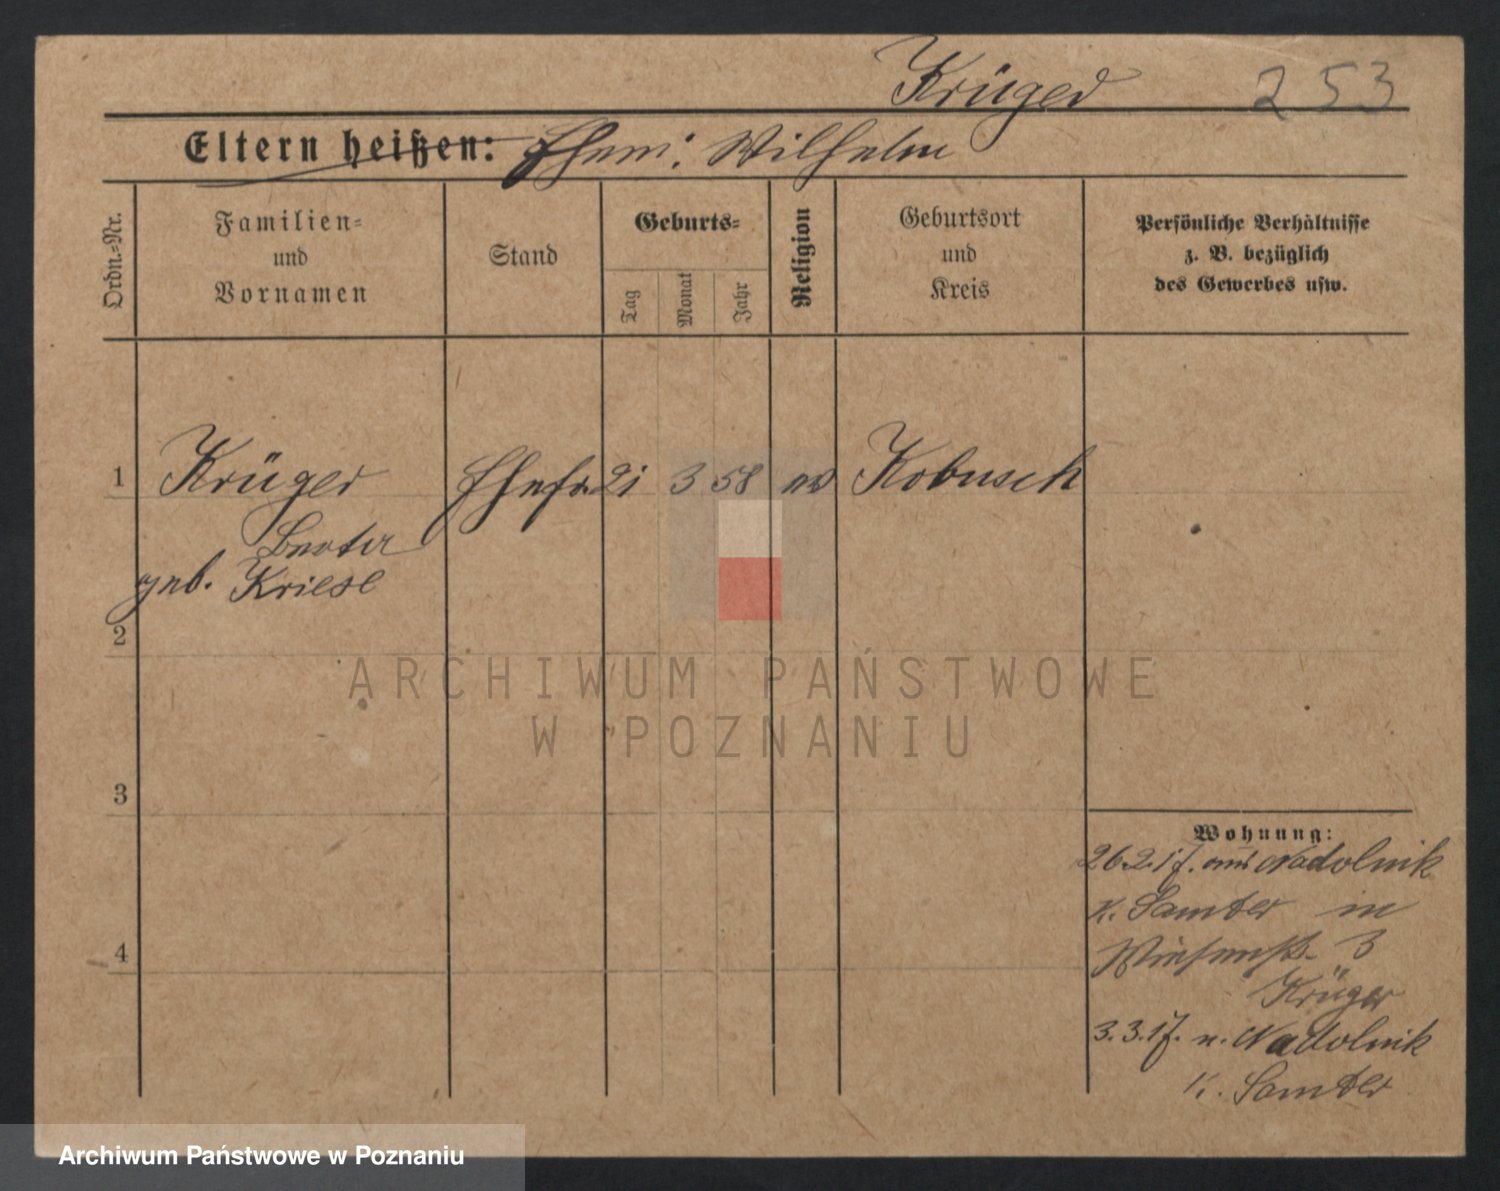 Krüger 253
Eltern heißen: Ehem: Wilhelm
Ordn.=Nr.
Familien=
und
Vornamen
Stand
Geburts=
Tag
Monat
Jahr
Religion
Geburtsort
und
Kreis
Persönliche Verhältnisse
z. B. bezüglich
des Gewerbes usw.
1 Krüger Ehefr. 21 3 58 ev Kobusch
Berta
geb. Kriese
2
3
4
Wohnung:
26.2.17. aus Nadolnik
K. Samter in
Wiesenstr. 3
Krüger
3.3.17. n. Nadolnik
K. Samter
ARCHIWUM PAŃSTWOWE
W POZNANIU
Archiwum Państwowe w Poznaniu